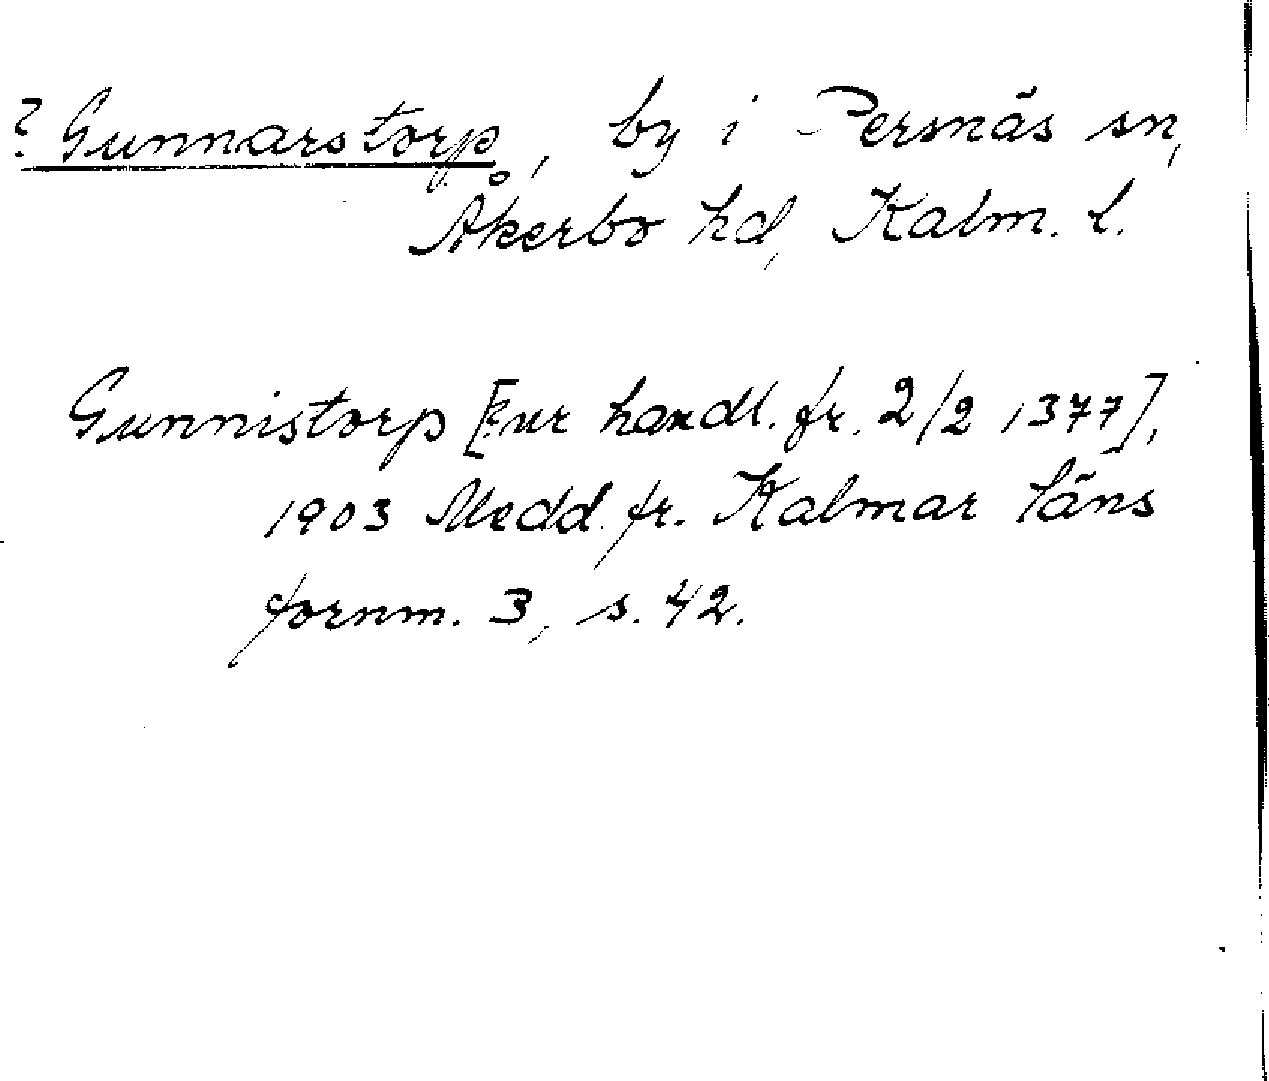 ? Gunnarstorp, by i Persnäs sn,
Åkerbo hd, Kalm. l.
Gunnistorp [: ur handl. fr. 2/2 1377],
1903 Medd. fr. Kalmar läns
fornm. 3, s. 42.